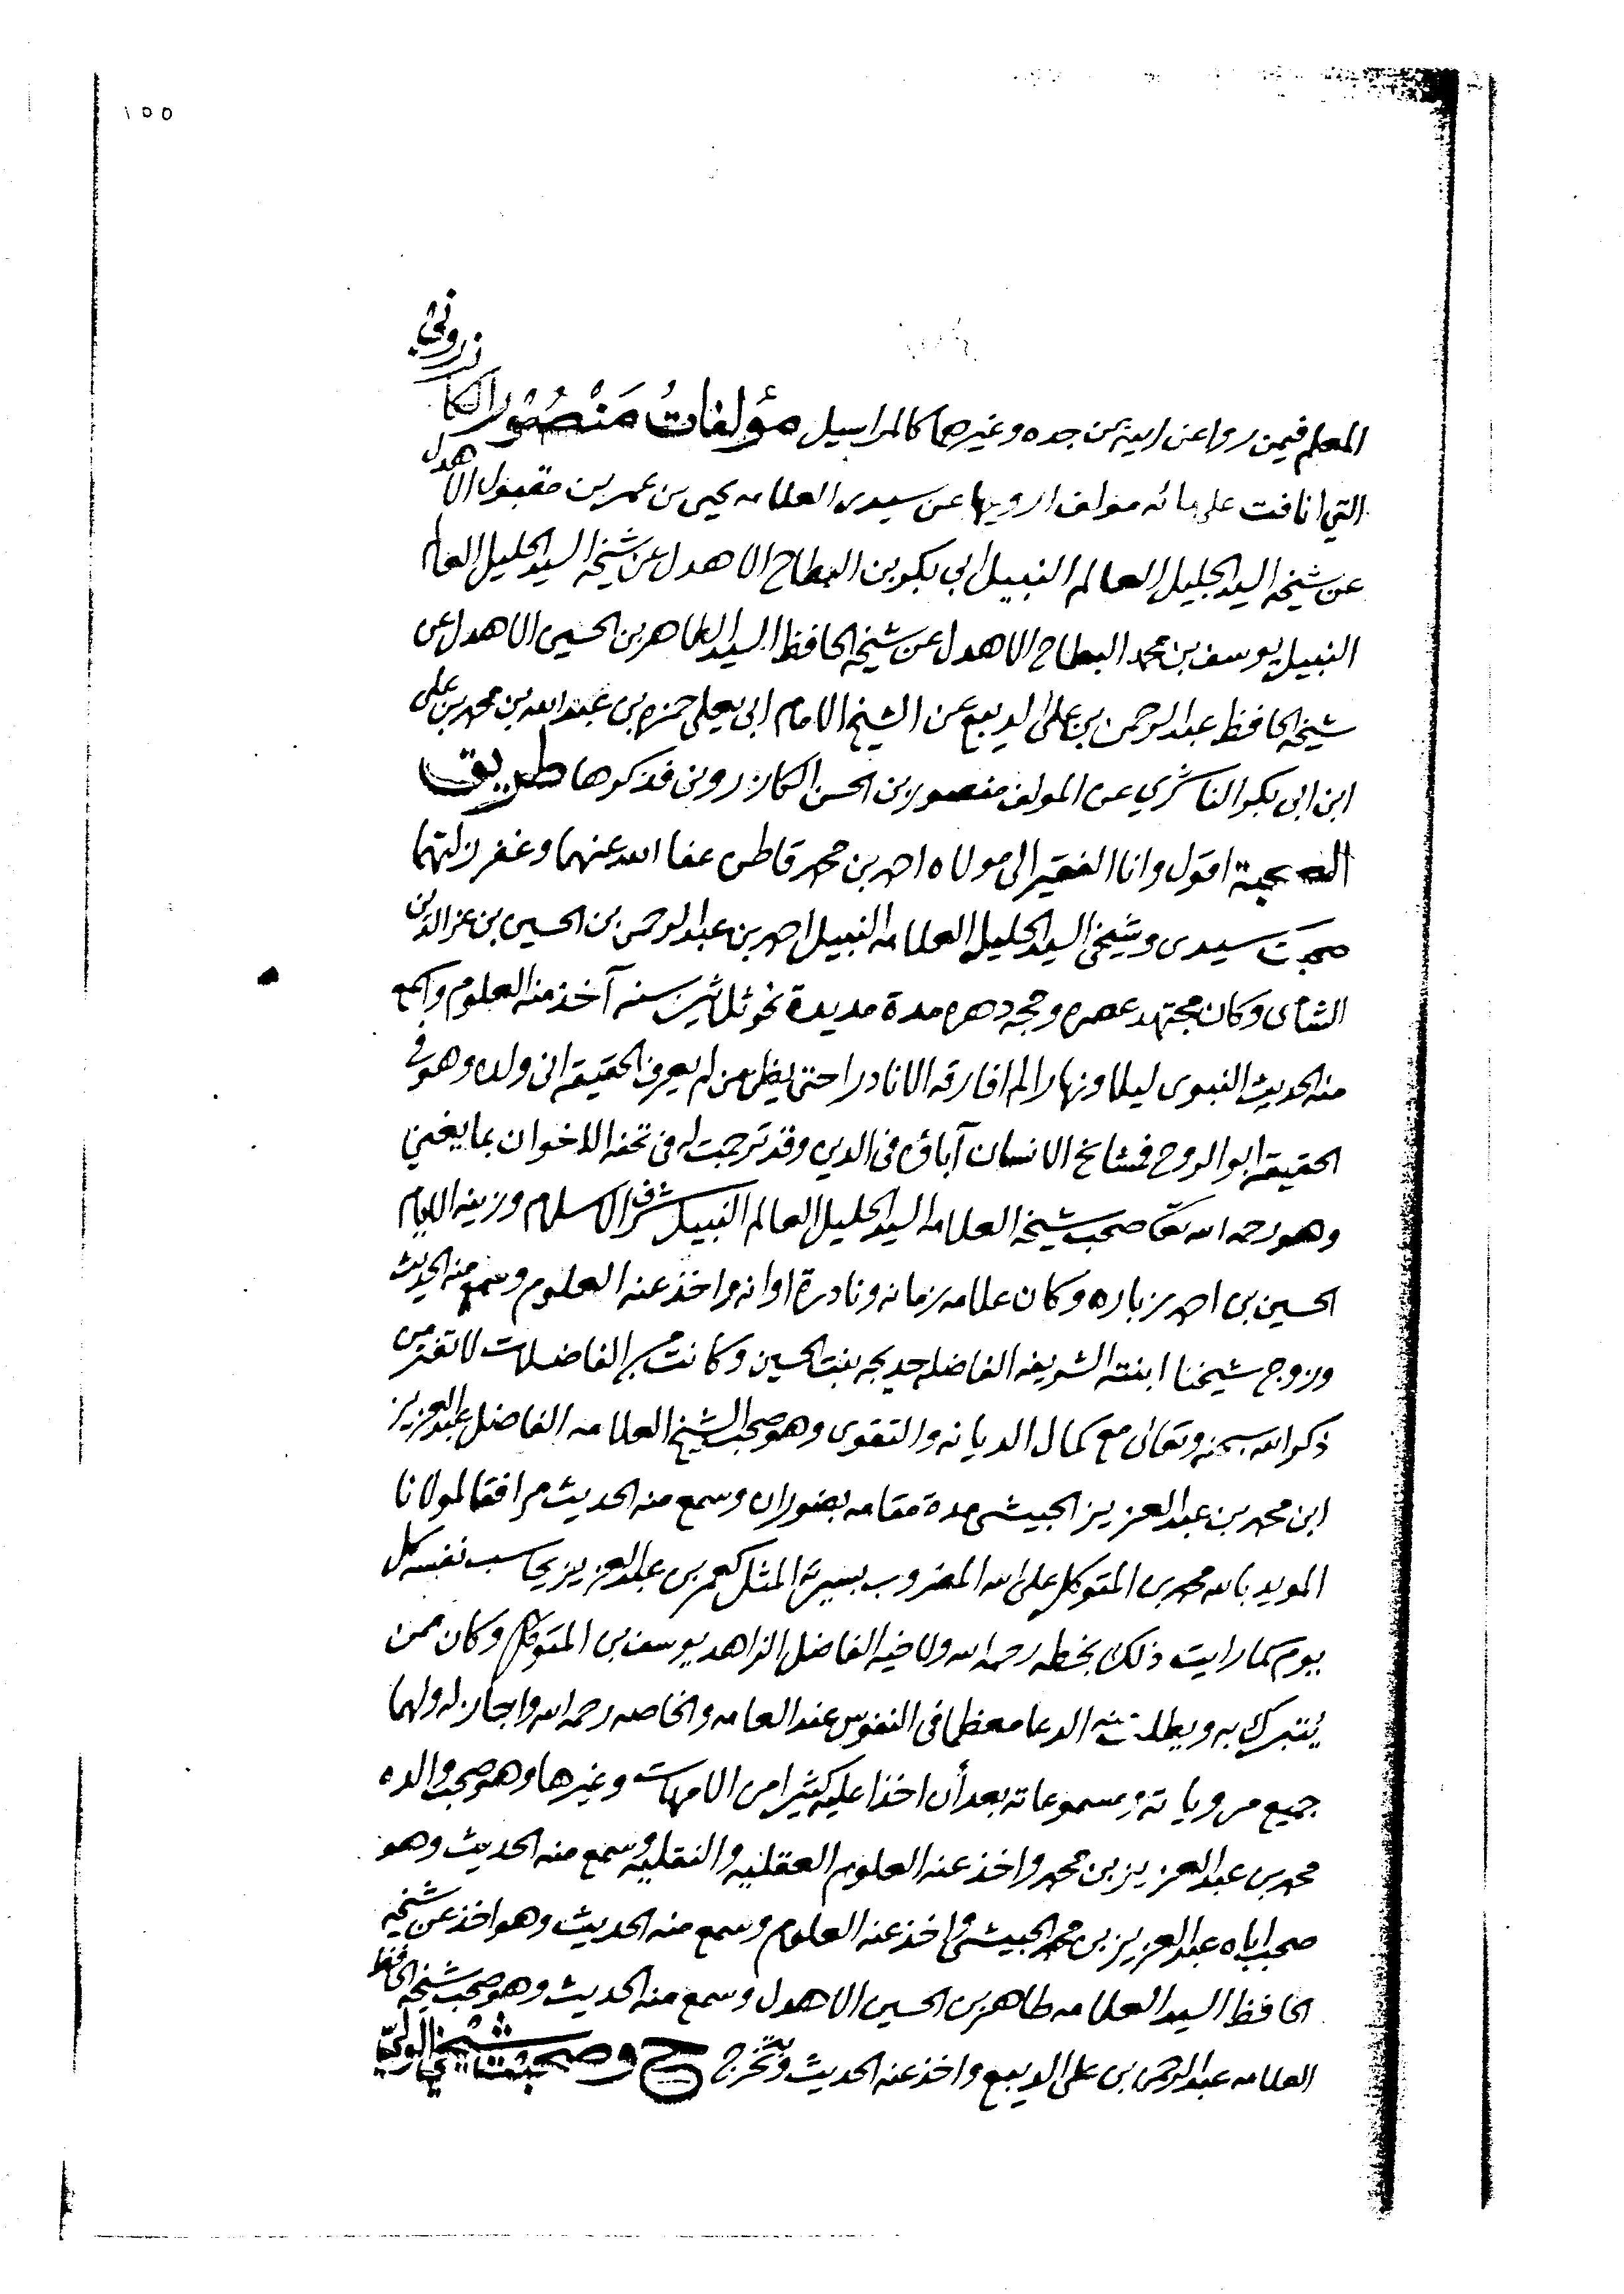 ١٥٥
المعلم فيمن روا عن ابيه عن جده وغيرهما كالمراسيل مؤلفات منصور الكازروني
التي انافت على مائه مولف ارويها عن سيدى العلامه يحيى بن عمر بن مقبول الاهدل
عن شيخه السيد الجليل العالم النبيل ابى بكر بن البطاح الاهدل عن شيخه السيد الجليل العالم
النبيل يوسف بن محمد البطاح الاهدل عن شيخه الحافظ السيد الطاهر بن الحسين الاهدل عن
شيخه الحافظ عبد الرحمن بن على الديبع عن الشيخ الامام ابى يعلى حمزه بن عبد الله بن محمد بن على
ابن ابى بكر الناشري عن المولف منصور بن الحسن الكازرونى فذكرها طريق
الصحبة اقول وانا الفقير الى مولاه احمد بن محمد قاطن عفا الله عنهما وغفر زلتهما
صحبت سيدى وشيخى السيد الجليل العلامه النبيل احمد بن عبد الرحمن بن الحسين بن عز الدين
الشامى وكان مجتهد عصره وحجه دهره مدة مديدة نحو ثلاثين سنه آخذ منه العلوم واسمع
منه الحديث النبوى ليلا ونهارا لم افارقه الا نادرا حتى يظن من لم يعرف الحقيقه انى ولده وهو فى
الحقيقه ابو الروح فمشايخ الانسان آباؤه فى الدين وقد ترجمت له فى تحفه الاخوان بما يغني
وهو رحمه الله تعا صحب شيخه العلامه السيد الجليل العالم النبيل شرف الاسلام وزينه الايام
الحسين بن احمد زباره وكان علامه زمانه ونادرة اوانه واخذ عنه العلوم وسمع منه الحديث
وزوج شيخنا ابنته الشريفه الفاضله خديجه بنت الحسين وكانت من الفاضلات لا تفتر من
ذكر الله سبحنه وتعالى مع كمال الديانه والتقوى وهو صحب الشيخ العلامه الفاضل عبد العزيز
ابن محمد بن عبد العزيز الحبيشى مدة مقامه بضوران وسمع منه الحديث مرافقا لمولانا
المويد بالله محمد بن المتوكل على الله المضروب بسيرته المثل كعمر بن عبد العزيز يحاسب نفسه كل
يوم كما رايت ذلك بخطه رحمه الله ولاخيه الفاضل الزاهد يوسف بن المتوكل وكان ممن
يتبرك به ويطلب منه الدعا معظما فى النفوس عند العامه والخاصه رحمه الله واجاز له ولهما
جميع مروياته ومسموعاته بعد أن اخذا عليه كثيرا من الامهات وغيرها وهو صحب والده
محمد بن عبد العزيز بن محمد واخذ عنه العلوم العقليه والنقليه وسمع منه الحديث وهو
صحب اباه عبد العزيز بن محمد الحبيشى واخذ عنه العلوم وسمع منه الحديث وهو اخذ عن شيخه
الحافظ السيد العلامه طاهر بن الحسين الاهدل وسمع منه الحديث وهو صحب شيخه الحافظ
العلامه عبد الرحمن بن على الديبع واخذ عنه الحديث وبه تخرج ح وصحبت شيخي الولي